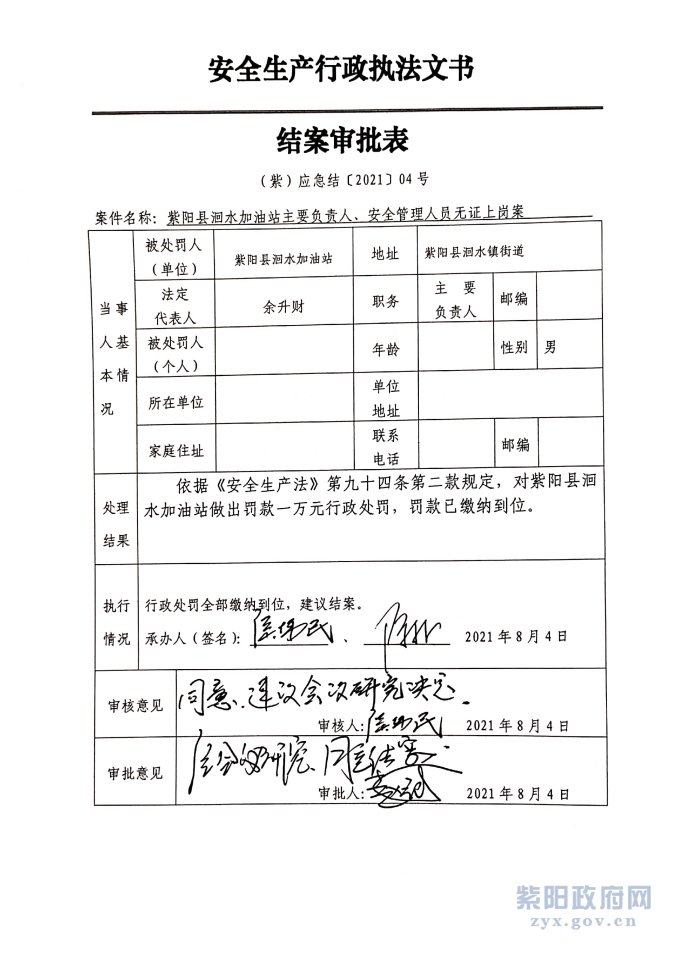 安全生产行政执法文书
结案审批表
（紫）应急结〔2021〕04号
案件名称：紫阳县洄水加油站主要负责人、安全管理人员无证上岗案
当事
人基
本情
况
被处罚人
（单位）
紫阳县洄水加油站
地址
紫阳县洄水镇街道
法定
代表人
余升财
职务
主 要
负责人
邮编
被处罚人
（个人）
年龄
性别
男
所在单位
单位
地址
家庭住址
联系
电话
邮编
处理
结果
依据《安全生产法》第九十四条第二款规定，对紫阳县洄
水加油站做出罚款一万元行政处罚，罚款已缴纳到位。
执行
情况
行政处罚全部缴纳到位，建议结案。
承办人（签名）：
、
2021年8月4日
审核意见
同意，建议会议研究决定。
审核人：
2021年8月4日
审批意见
同意结案
审批人：
2021年8月4日
紫阳政府网
zyx.gov.cn